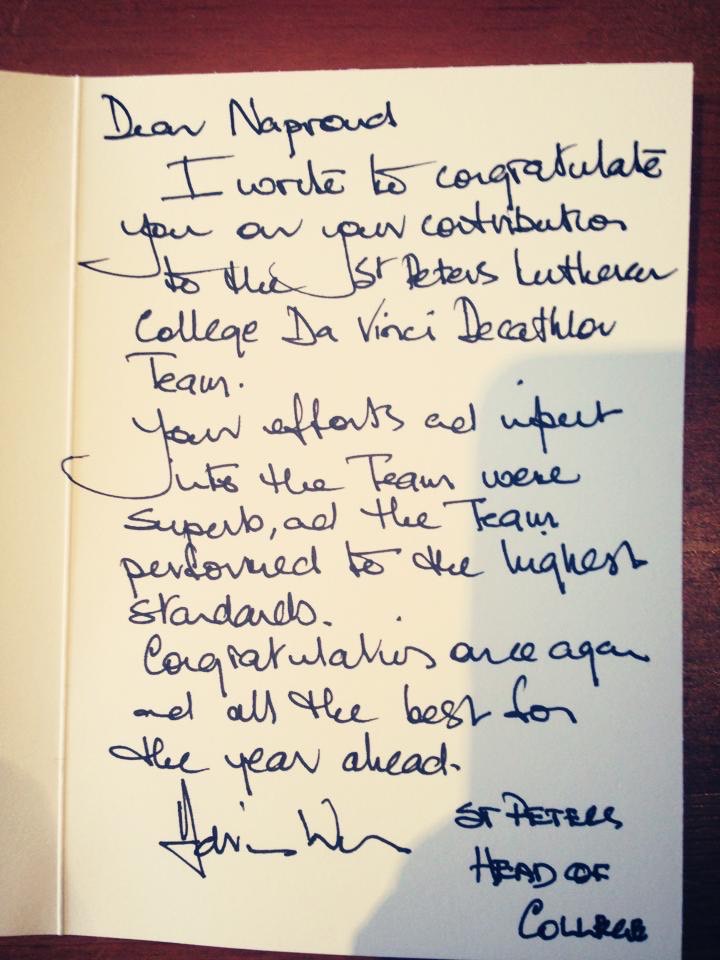 Dear Naproud
I write to congratulate
you on your contribution
to the St Peters Lutheran
College Da Vinci Decathlon
Team.
Your efforts and input
into the Team were
superb, and the Team
performed to the highest
standards.
Congratulations once again
and all the best for
the year ahead.
ST PETERS
HEAD OF
COLLEGE